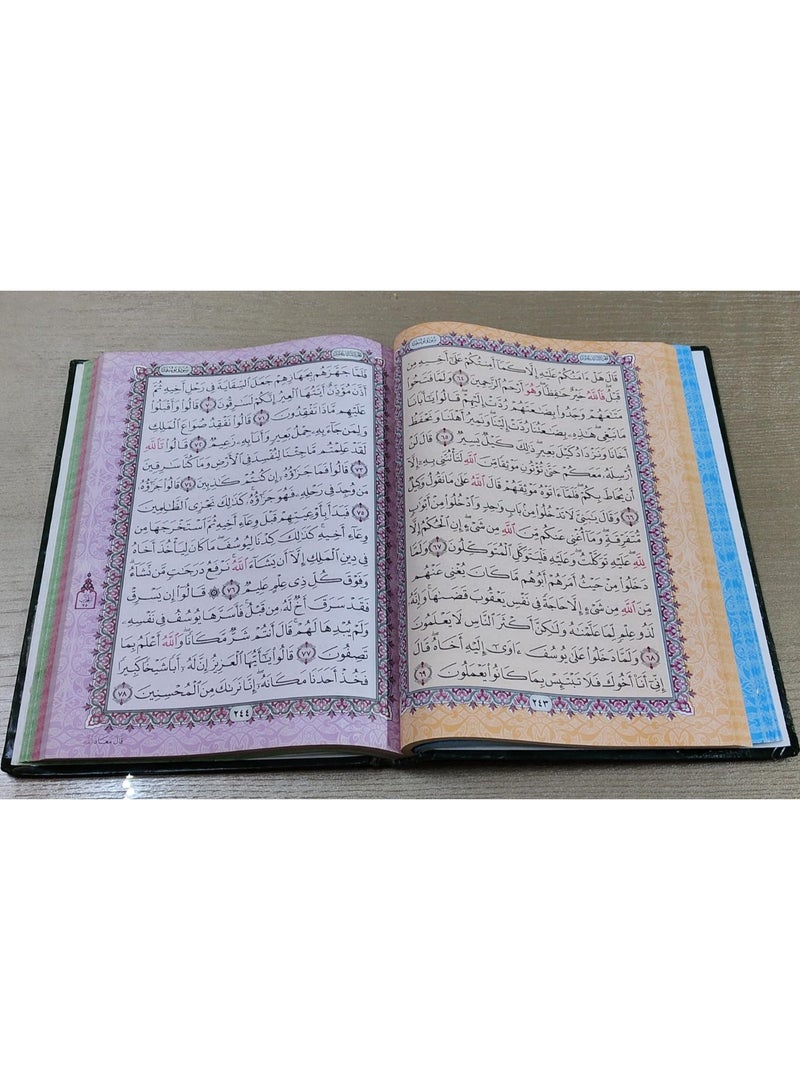 قَالَ هَلْ ءَامَنُكُمْ عَلَيْهِ إِلَّا كَمَآ أَمِنتُكُمْ عَلَىٰٓ أَخِيهِ مِن
قَبْلُ فَٱللَّهُ خَيْرٌ حَٰفِظًا وَهُوَ أَرْحَمُ ٱلرَّٰحِمِينَ ٦٤ وَلَمَّا فَتَحُوا۟
مَتَٰعَهُمْ وَجَدُوا۟ بِضَٰعَتَهُمْ رُدَّتْ إِلَيْهِمْ قَالُوا۟ يَٰٓأَبَانَا
مَا نَبْغِى هَٰذِهِۦ بِضَٰعَتُنَا رُدَّتْ إِلَيْنَا وَنَمِيرُ أَهْلَنَا وَنَحْفَظُ
أَخَانَا وَنَزْدَادُ كَيْلَ بَعِيرٍ ذَٰلِكَ كَيْلٌ يَسِيرٌ ٦٥ قَالَ لَنْ
أُرْسِلَهُۥ مَعَكُمْ حَتَّىٰ تُؤْتُونِ مَوْثِقًا مِّنَ ٱللَّهِ لَتَأْتُنَّنِى بِهِۦٓ إِلَّآ
أَن يُحَاطَ بِكُمْ فَلَمَّآ ءَاتَوْهُ مَوْثِقَهُمْ قَالَ ٱللَّهُ عَلَىٰ مَا نَقُولُ وَكِيلٌ
٦٦ وَقَالَ يَٰبَنِىَّ لَا تَدْخُلُوا۟ مِنۢ بَابٍ وَٰحِدٍ وَٱدْخُلُوا۟ مِنْ أَبْوَٰبٍ
مُّتَفَرِّقَةٍ وَمَآ أُغْنِى عَنكُم مِّنَ ٱللَّهِ مِن شَىْءٍ إِنِ ٱلْحُكْمُ إِلَّا
لِلَّهِ عَلَيْهِ تَوَكَّلْتُ وَعَلَيْهِ فَلْيَتَوَكَّلِ ٱلْمُتَوَكِّلُونَ ٦٧ وَلَمَّا
دَخَلُوا۟ مِنْ حَيْثُ أَمَرَهُمْ أَبُوهُم مَّا كَانَ يُغْنِى عَنْهُم
مِّنَ ٱللَّهِ مِن شَىْءٍ إِلَّا حَاجَةً فِى نَفْسِ يَعْقُوبَ قَضَىٰهَا وَإِنَّهُۥ
لَذُو عِلْمٍ لِّمَا عَلَّمْنَٰهُ وَلَٰكِنَّ أَكْثَرَ ٱلنَّاسِ لَا يَعْلَمُونَ
٦٨ وَلَمَّا دَخَلُوا۟ عَلَىٰ يُوسُفَ ءَاوَىٰٓ إِلَيْهِ أَخَاهُ قَالَ
إِنِّىٓ أَنَا۠ أَخُوكَ فَلَا تَبْتَئِسْ بِمَا كَانُوا۟ يَعْمَلُونَ ٦٩
٢٤٣
فَلَمَّا جَهَّزَهُم بِجَهَازِهِمْ جَعَلَ ٱلسِّقَايَةَ فِى رَحْلِ أَخِيهِ ثُمَّ
أَذَّنَ مُؤَذِّنٌ أَيَّتُهَا ٱلْعِيرُ إِنَّكُمْ لَسَٰرِقُونَ ٧٠ قَالُوا۟ وَأَقْبَلُوا۟
عَلَيْهِم مَّاذَا تَفْقِدُونَ ٧١ قَالُوا۟ نَفْقِدُ صُوَاعَ ٱلْمَلِكِ
وَلِمَن جَآءَ بِهِۦ حِمْلُ بَعِيرٍ وَأَنَا۠ بِهِۦ زَعِيمٌ ٧٢ قَالُوا۟ تَٱللَّهِ
لَقَدْ عَلِمْتُم مَّا جِئْنَا لِنُفْسِدَ فِى ٱلْأَرْضِ وَمَا كُنَّا سَٰرِقِينَ
٧٣ قَالُوا۟ فَمَا جَزَٰٓؤُهُۥٓ إِن كُنتُمْ كَٰذِبِينَ ٧٤ قَالُوا۟ جَزَٰٓؤُهُۥ
مَن وُجِدَ فِى رَحْلِهِۦ فَهُوَ جَزَٰٓؤُهُۥ كَذَٰلِكَ نَجْزِى ٱلظَّٰلِمِينَ
٧٥ فَبَدَأَ بِأَوْعِيَتِهِمْ قَبْلَ وِعَآءِ أَخِيهِ ثُمَّ ٱسْتَخْرَجَهَا مِن
وِعَآءِ أَخِيهِ كَذَٰلِكَ كِدْنَا لِيُوسُفَ مَا كَانَ لِيَأْخُذَ أَخَاهُ
فِى دِينِ ٱلْمَلِكِ إِلَّآ أَن يَشَآءَ ٱللَّهُ نَرْفَعُ دَرَجَٰتٍ مَّن نَّشَآءُ
وَفَوْقَ كُلِّ ذِى عِلْمٍ عَلِيمٌ ٧٦ ۞ قَالُوٓا۟ إِن يَسْرِقْ
فَقَدْ سَرَقَ أَخٌ لَّهُۥ مِن قَبْلُ فَأَسَرَّهَا يُوسُفُ فِى نَفْسِهِۦ
وَلَمْ يُبْدِهَا لَهُمْ قَالَ أَنتُمْ شَرٌّ مَّكَانًا وَٱللَّهُ أَعْلَمُ بِمَا
تَصِفُونَ ٧٧ قَالُوا۟ يَٰٓأَيُّهَا ٱلْعَزِيزُ إِنَّ لَهُۥٓ أَبًا شَيْخًا كَبِيرًا
فَخُذْ أَحَدَنَا مَكَانَهُۥٓ إِنَّا نَرَىٰكَ مِنَ ٱلْمُحْسِنِينَ ٧٨
٢٤٤
قال معاذ